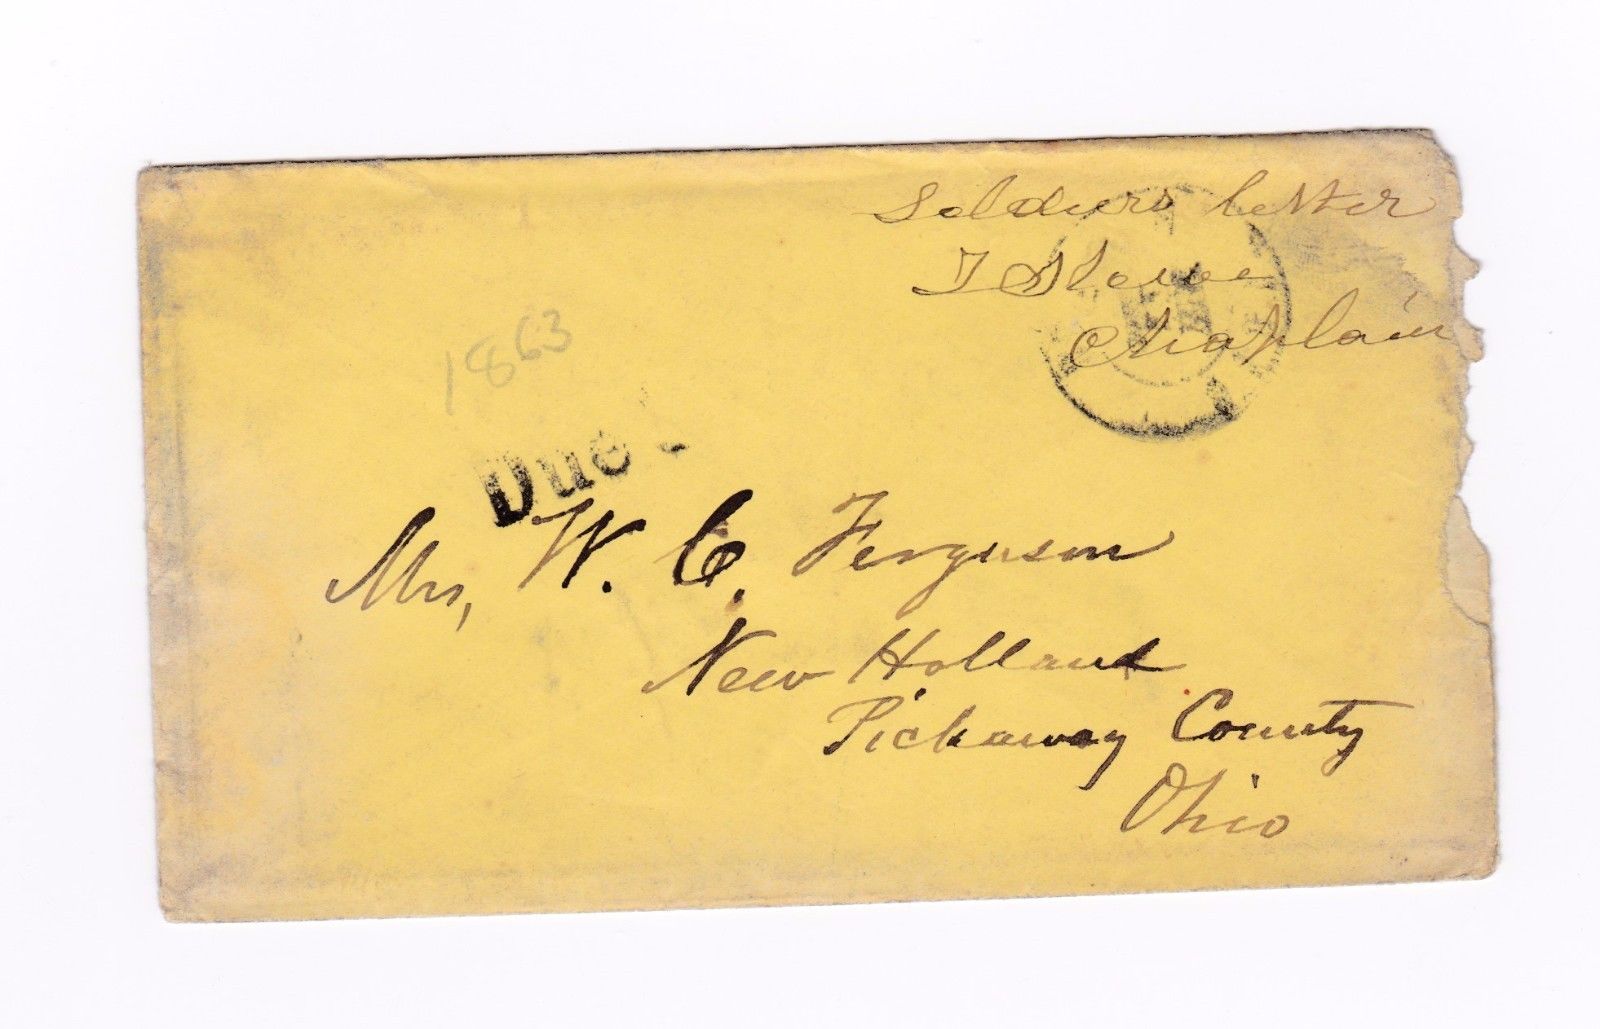 Soldiers Letter
Chaplain
1863
Due
Mrs, W. C. Ferguson
New Holland
Pickaway County
Ohio